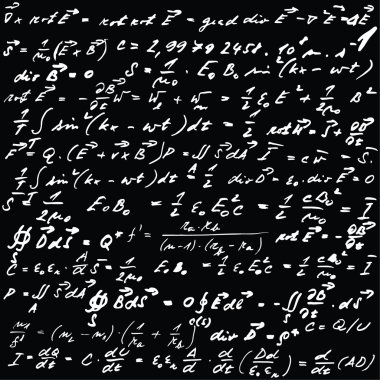 ∇ × rot E⃗ = rot rot E⃗ = grad div E⃗ − ∇² E⃗ = ΔE⃗
S⃗ = 1/μ₀ (E⃗ × B⃗) c = 2,99792458 · 10⁸ m · s⁻¹
div B⃗ = 0 S⃗ = 1/μ₀ · E₀ B₀ sin² (kx − ωt)
rot E⃗ = − ∂B⃗/∂t w = wₑ + wₘ = 1/2 ε₀ E² + 1/2μ₀ B²
1/T ∫ sin² (kx − ωt) dt = 1/2 rot H⃗ = J⃗ + ∂D⃗/∂t
F⃗ = Q · (E⃗ + v⃗ × B⃗) P = ∬ S⃗ dA⃗ I = c w = S
1/T ∫ sin² (kx − ωt) dt = 1/2 div D⃗ = ε₀ · div E⃗ = 0
S = 1/2μ₀ E₀ B₀ = 1/2 ε₀ E₀² c = 1/2 c B₀²/μ₀ = I
∯ D⃗ dS⃗ = Q* f' = rₐ · r_b / (n−1) · (r_b − rₐ) rot E⃗ = − ∂B⃗/∂t
C = ε₀ εᵣ A/d S = 1/2μ₀ E₀ B₀ = 1/2 ε₀ E₀² c = 1/2 c B₀²/μ₀ = I
P = ∬ S⃗ dA⃗ ∯ B⃗ dS⃗ = 0 ∮ E⃗ dℓ⃗ = − ∬ ∂B⃗/∂t · dS⃗
= (n₂ − n₁) · (1/rₐ + 1/r_b) div D⃗ = ρ* C = Q/U
I = dQ/dt = C · dU/dt = ε₀ εᵣ A/d · d/dt (Dd/ε₀ εᵣ) = d/dt (AD)